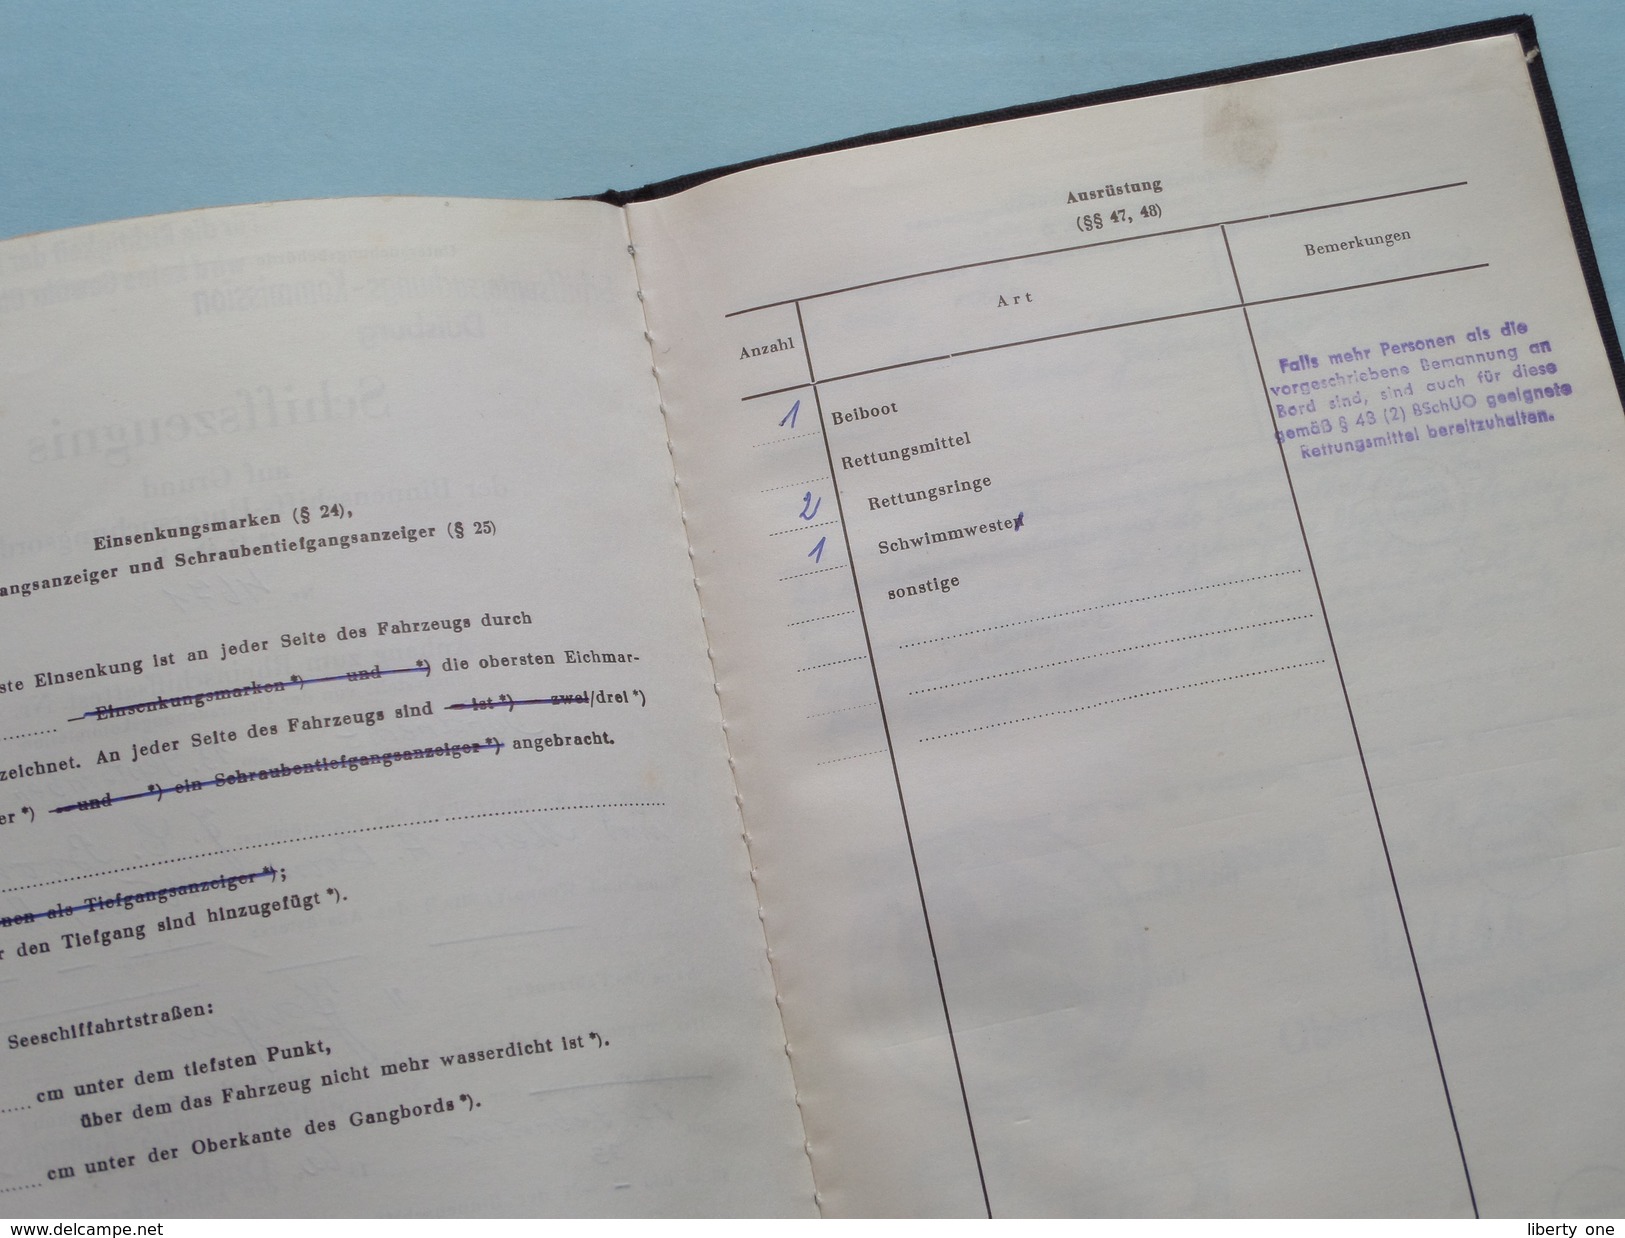 Einsenkungsmarken (§ 24),
angsanzeiger und Schraubentiefgangsanzeiger (§ 25)
ste Einsenkung ist an jeder Seite des Fahrzeugs durch
— Einsenkungsmarken *) — und — *) die obersten Eichmar-
zeichnet. An jeder Seite des Fahrzeugs sind — ist *) — zwei/drei *)
er *) — und — *) ein Schraubentiefgangsanzeiger *) angebracht.
nen als Tiefgangsanzeiger *);
r den Tiefgang sind hinzugefügt *).
Seeschiffahrtstraßen:
cm unter dem tiefsten Punkt,
über dem das Fahrzeug nicht mehr wasserdicht ist *).
cm unter der Oberkante des Gangbords *).
Ausrüstung
(§§ 47, 48)
Anzahl Art Bemerkungen
1 Beiboot
Rettungsmittel
2 Rettungsringe
1 Schwimmwesten
sonstige
Falls mehr Personen als die
vorgeschriebene Bemannung an
Bord sind, sind auch für diese
gemäß § 48 (2) BSchUO geeignete
Rettungsmittel bereitzuhalten.
www.delcampe.net
liberty one